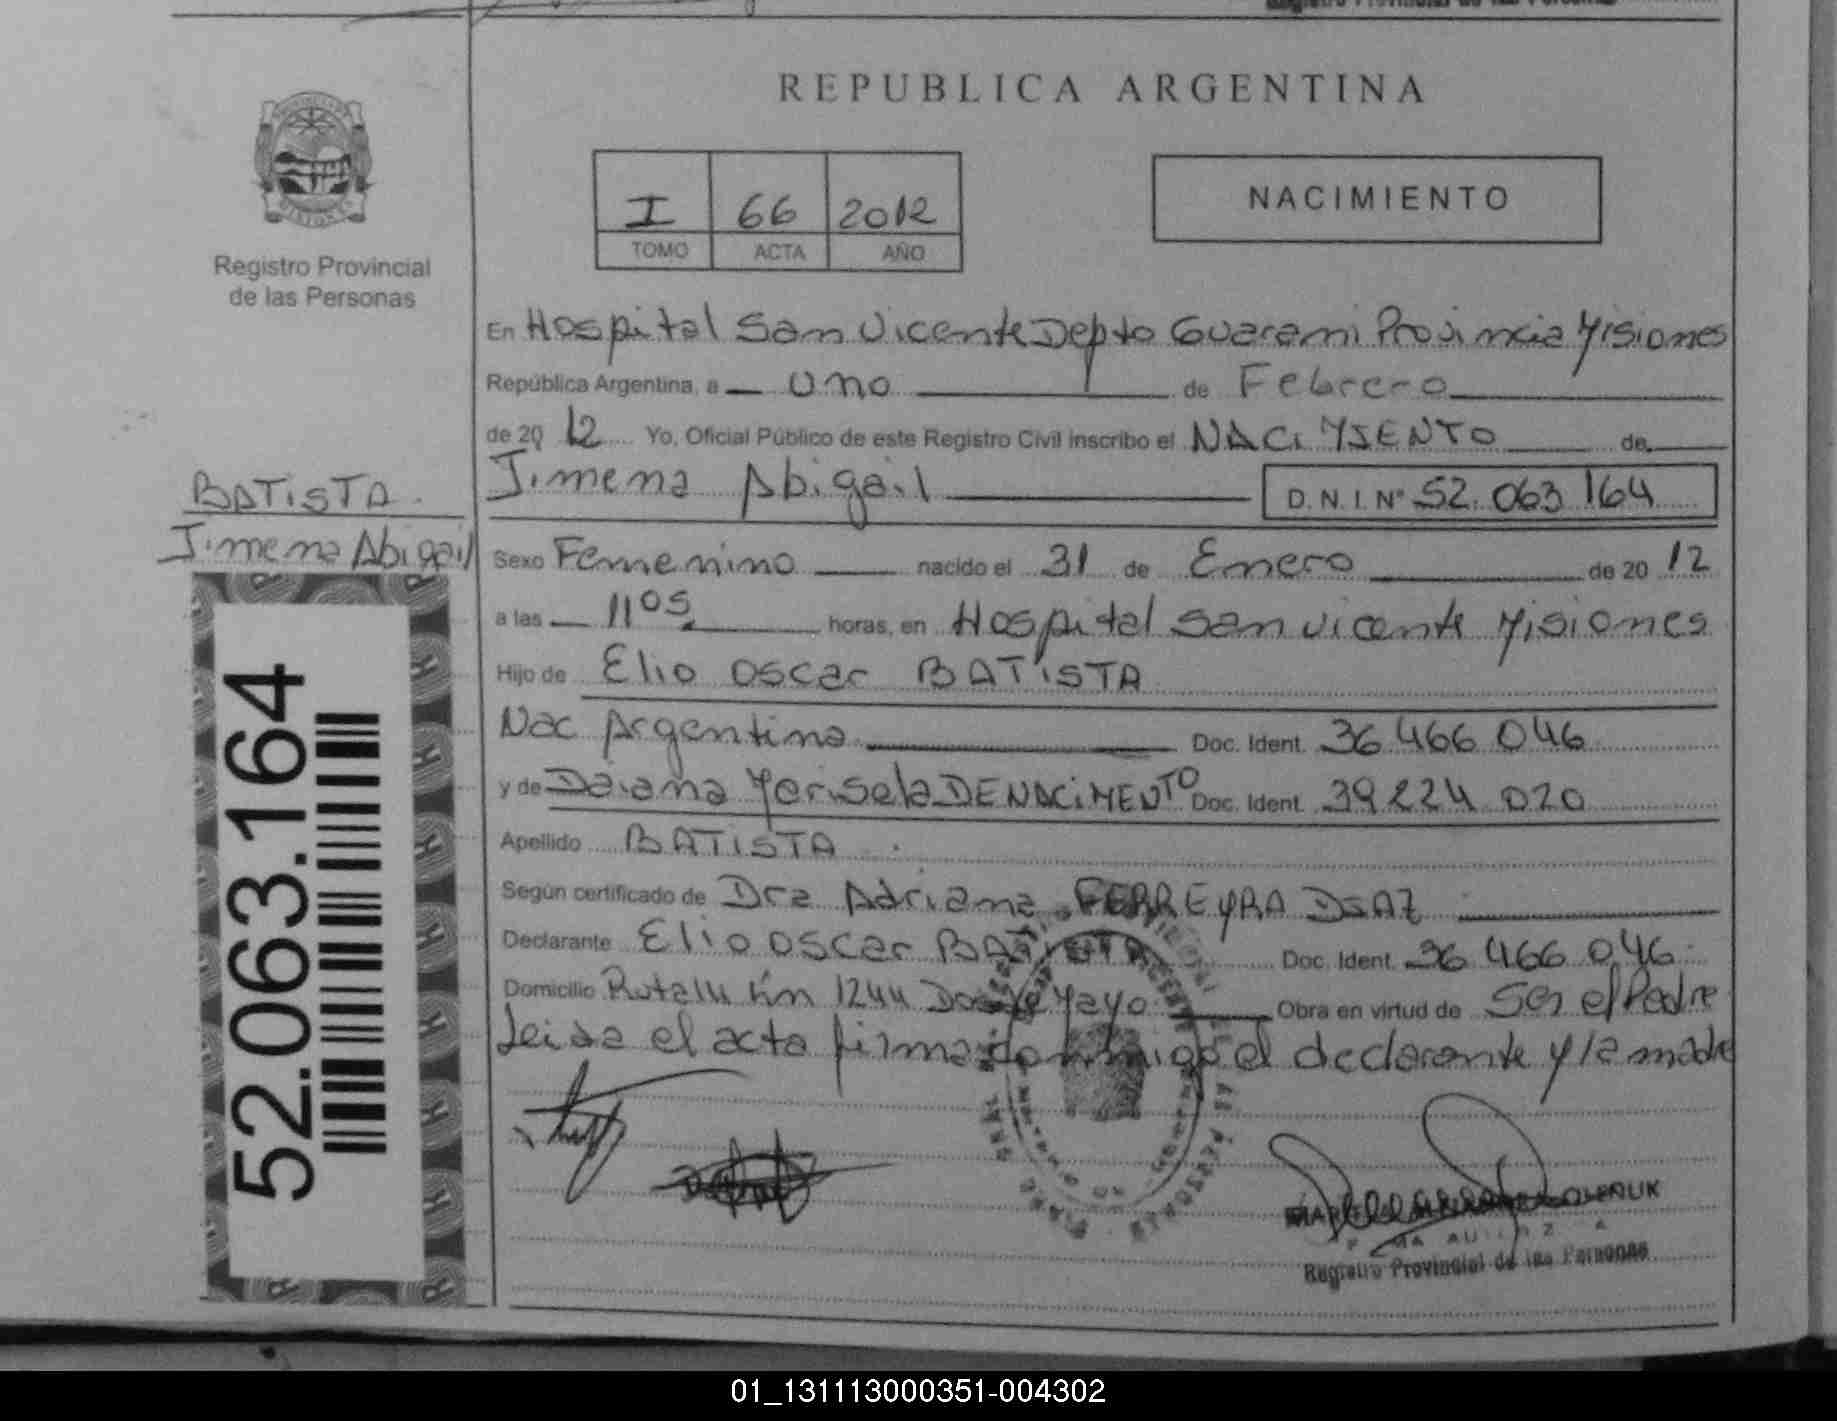 REPUBLICA ARGENTINA
I 66 2012
TOMO ACTA AÑO
NACIMIENTO
Registro Provincial
de las Personas
En Hospital San Vicente Depto Guarani Provincia Misiones
República Argentina, a uno de Febrero
de 20 12 Yo, Oficial Público de este Registro Civil inscribo el NACIMIENTO de
Jimena Abigail D.N.I. N° 52.063 164
BATISTA
Jimena Abigail
Sexo Femenino nacido el 31 de Enero de 20 12
a las 11 05 horas, en Hospital San Vicente Misiones
Hijo de Elio Oscar BATISTA
Nac Argentina Doc. Ident. 36 466 046
y de Daiana Marisela DE NACIMENTO Doc. Ident. 39 224 020
Apellido BATISTA
Según certificado de Dra Adriana FERREYRA DIAZ
Declarante Elio Oscar BATISTA Doc. Ident. 36 466 046
Domicilio Ruta 14 Km 1244 Dos de Mayo Obra en virtud de Ser el Padre
Leida el acta firma conmigo el declarante y la madre
52.063.164
Registro Provincial de las Personas
01_131113000351-004302